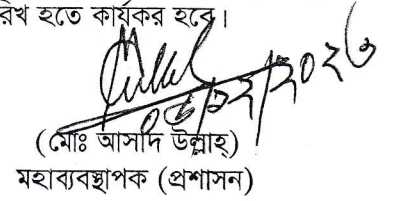 রিখ হতে কার্যকর হবে।
(মোঃ আসাদ উল্লাহ্)
মহাব্যবস্থাপক (প্রশাসন)